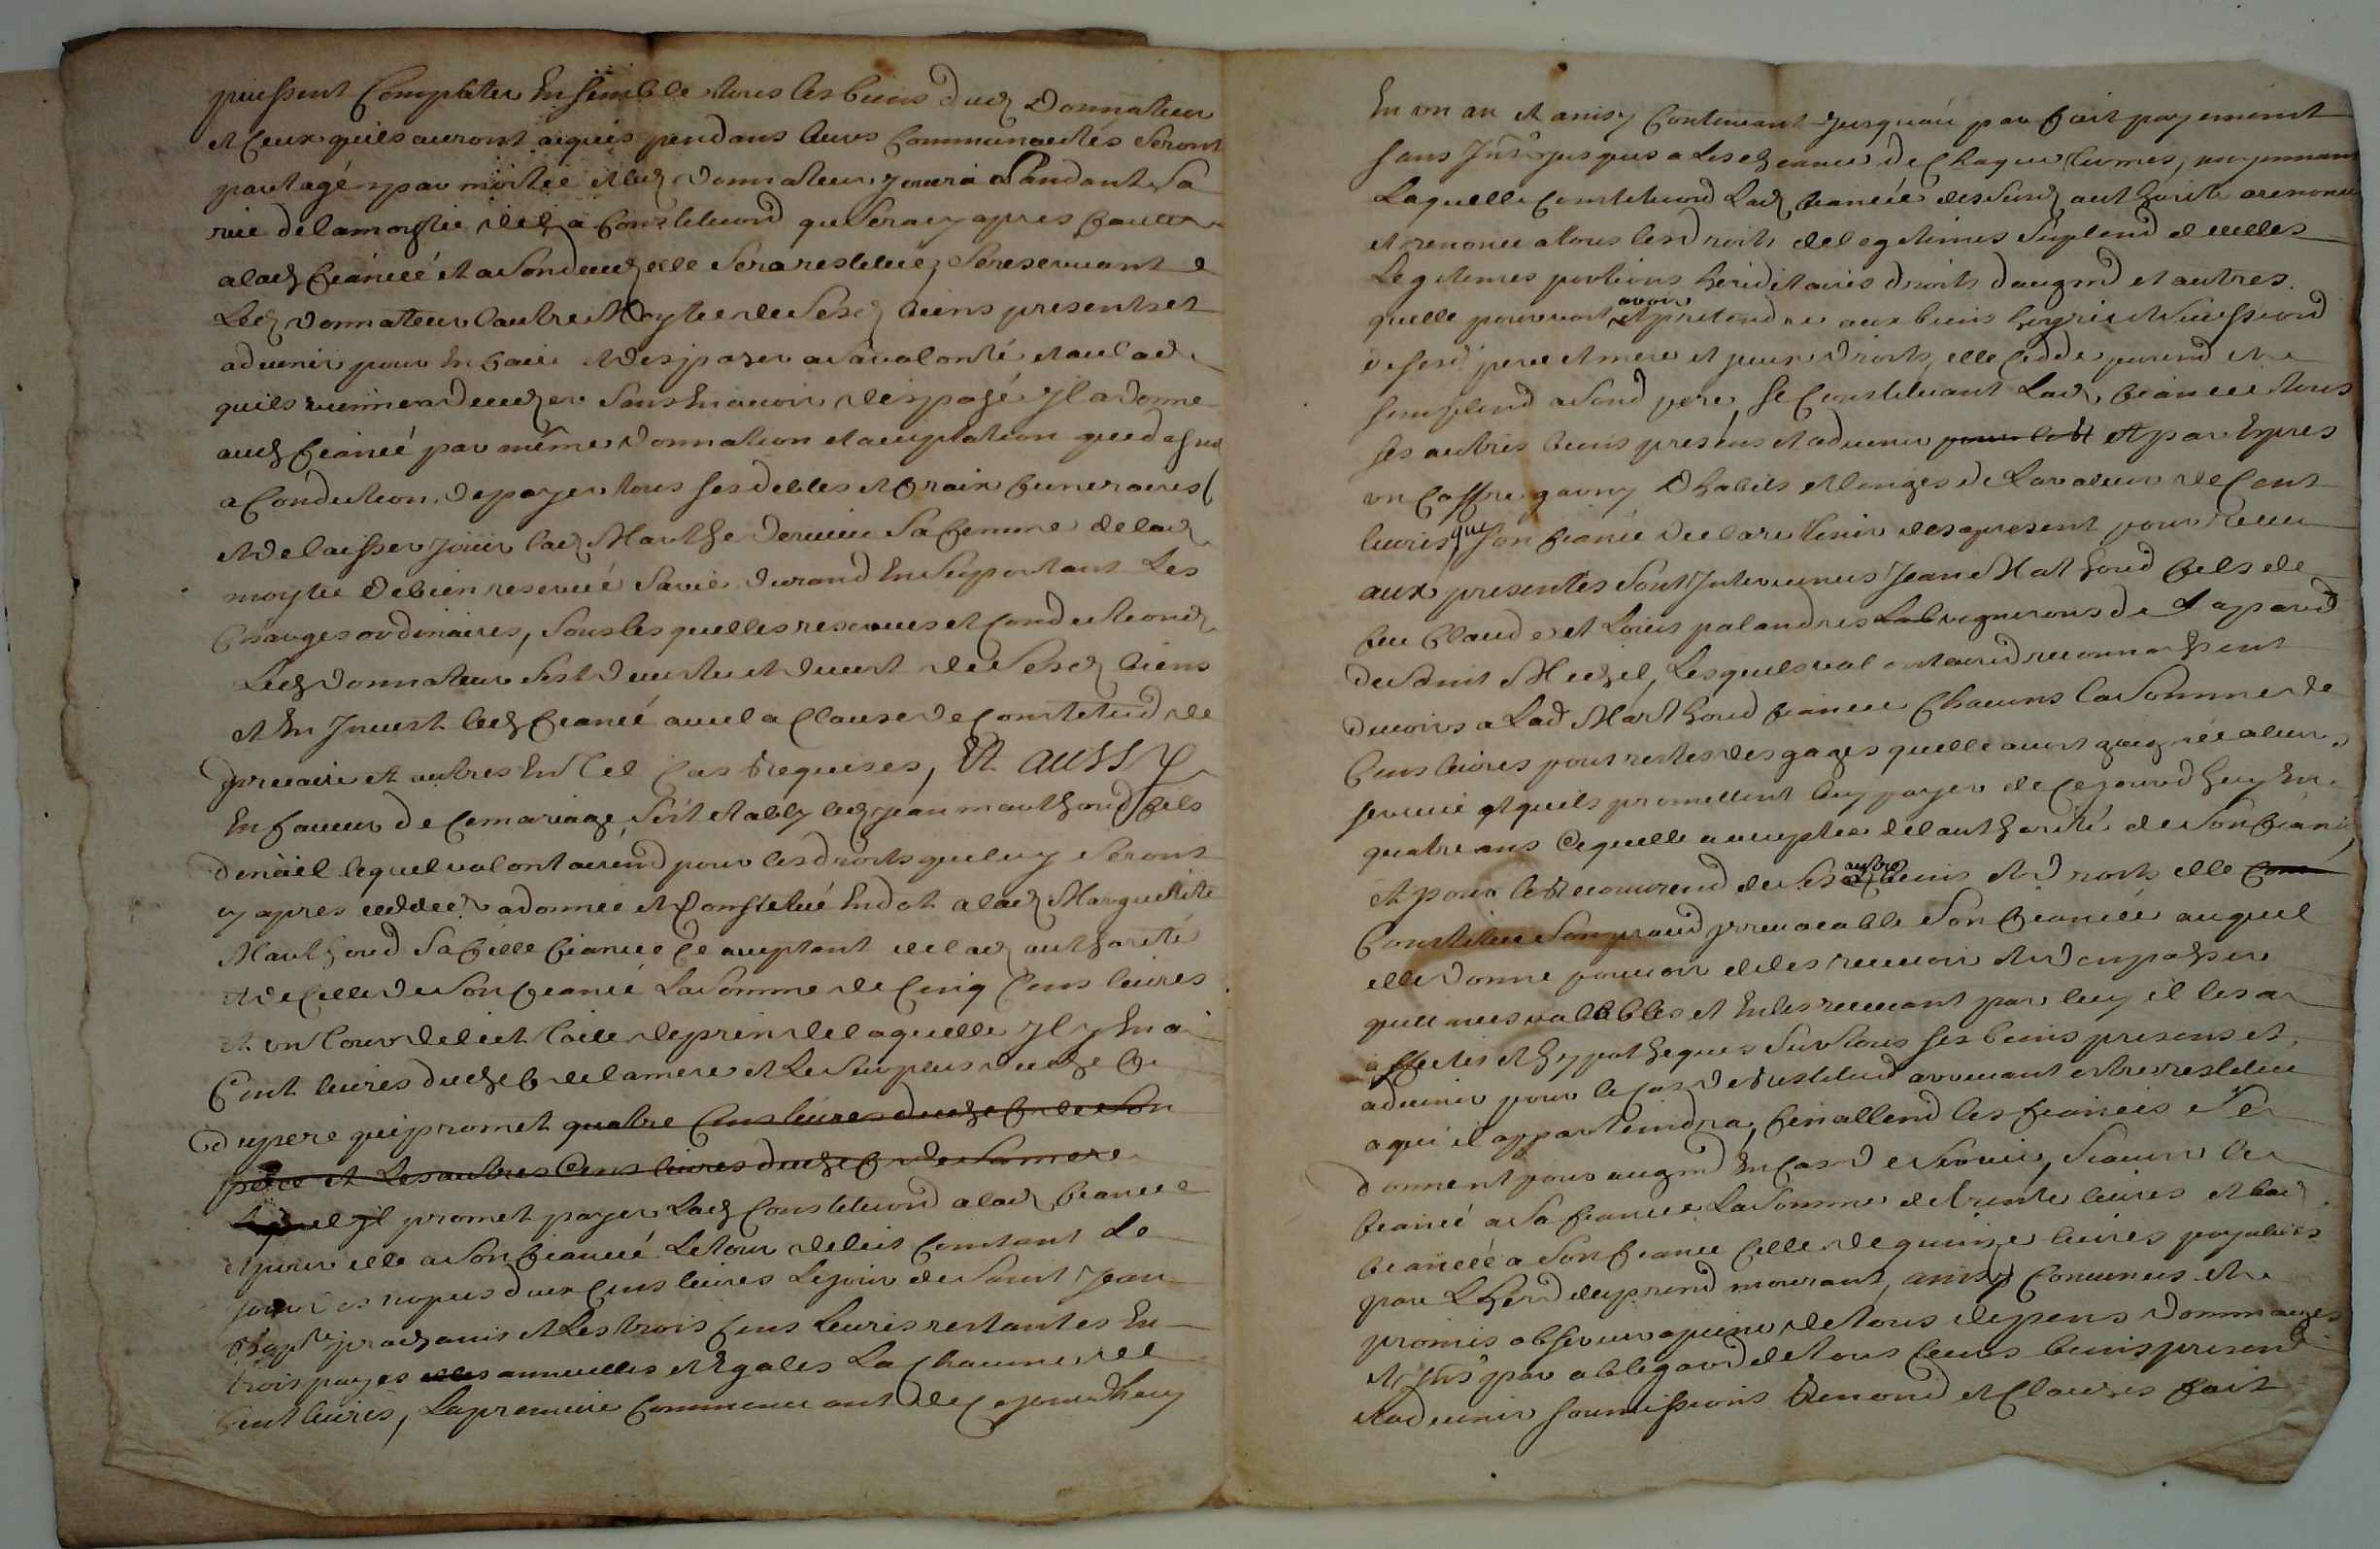 puissent Compléter Ensemble tous les biens dud Donnateur
et Ceux quils auront aquis pendans leurs Communautés Seront
partagé par moitié et led Donnateur jouira Pandant Sa
vie de la moytié de la Constitution que Sera cy apres faitte
a lad fiancée et a Son deced elle Sera restituée, Se reservant
Led Donnateur l'autre Moytiée de Sesd biens presents et
advenir pour En faire et disposer a Sa volonté et au cad
quils vienne a deceder Sans En avoir disposé Il a donne
aud fiancé par même Donnation et acceptation que dessus
a Condition de payer tous ses debtes et fraix funeraires
et de laisser jouir lad Marthe Sa femme de lad
moytie de bien reservé Sa vie durand En Suportant Les
Charges ordinaires, Sous lesquelles reserves et Conditions
Led Donnateur Sest devestu et devest de Sesd biens
et En Invest led fiancé avec la Clause de Constitut de
precaire et autres En tel Cas Requises, Et AUSSY
En faveur de Ce mariage, Sest etably led Jean mathoud fils
de lequel volontairemd pour les droits que luy Seront
cy apres cedded a donnée et Constitué En dot a lad Margueritte
Mathoud Sa fille fiancee Ce acceptant de lad authorité
et de Celle de Son fiancé La Somme de Cinq Cens livres
et un tour de lict toille de prin de laquelle Il y En a
Cent livres du chef de la mere et Le Surplus du chef
du pere qui promet quatre Cens livres du chef de Son
pere et Les autres Cens livres du chef de Sa mere
Lequel Il promet payer Lad Constitution a lad fiancée
et pour elle a Son fiancé Le tour de lict Contant Le
jour des nopces deux Cens livres Le jour de Saint Jean
Bapte prochain et Les trois Cens livres restantes En
trois payes annuelles et Egales La Chacune de
Cent livres, La premiere Commencant de Cejourdhuy
En un an et ainsy Continuant jusqu'au parfait payement
sans Jnst jusques a Les cheance de Chaque terme, moyennant
Laquelle Constitution Lad fiancée des Susd authorité a renoncé
et renonce a tous les droits de legitimes Suplemd dicelles
Legitimes portions héréditaires droits daugmd et autres
quelle pourroit avoir et pretendre aux biens hoyrie et Succession
de Sesd pere et mere et pour droits elle Cedde
simplemd a Sond pere, Se Constituant Lad fiancee tous
ses autres biens présens et advenir pour le et par Expres
un Coffre garny dhabits et linges de La valeur de Cent
livres que Son fiancé declare tenir des a present pour Receu
aux presentes Sont Intervenus Jean Mathoud fils de
feu Claude et Louis palandres Lab vignerons de La
de Saint Michel, Lesquels volontairemd reconnoissent
devoirs a Lad Marthoud fiancee Chacuns la Somme de
Cens livres pour restes des gages quelle avoit gagnée a leur
service et quils promettent luy payer de Cejourdhuy En
quatre ans Ce quelle a acceptée de lauthorité de Son fiancé
et pour le Recouvremd de Ses autres biens et droits elle Cons
Constitue Son procud irrevocable Son fiancée auquel
elle donne pouvoir de les recevoir et den passer
quittances vallables et En les recevant par luy il les a
affectés et hypothequés Sur tous ses biens presens et
advenir pour le Cas de restitud arrivant estre restitue
a qui il appartiendra, finallemd les fiancés Se
donnent pour augmd En Cas de Survie, Scavoir le
fiancé a Sa fiancee La Somme de trente livres et lad
fiancée a Son fiance Celle de quinze livres payables
par Lherd du premd mourant, ainsy Convenus et
promis observer a peine de tous depens dommages
et Jnst par obligaond de tous leurs biens presend
et advenir soumissions Renond et Clauses fait